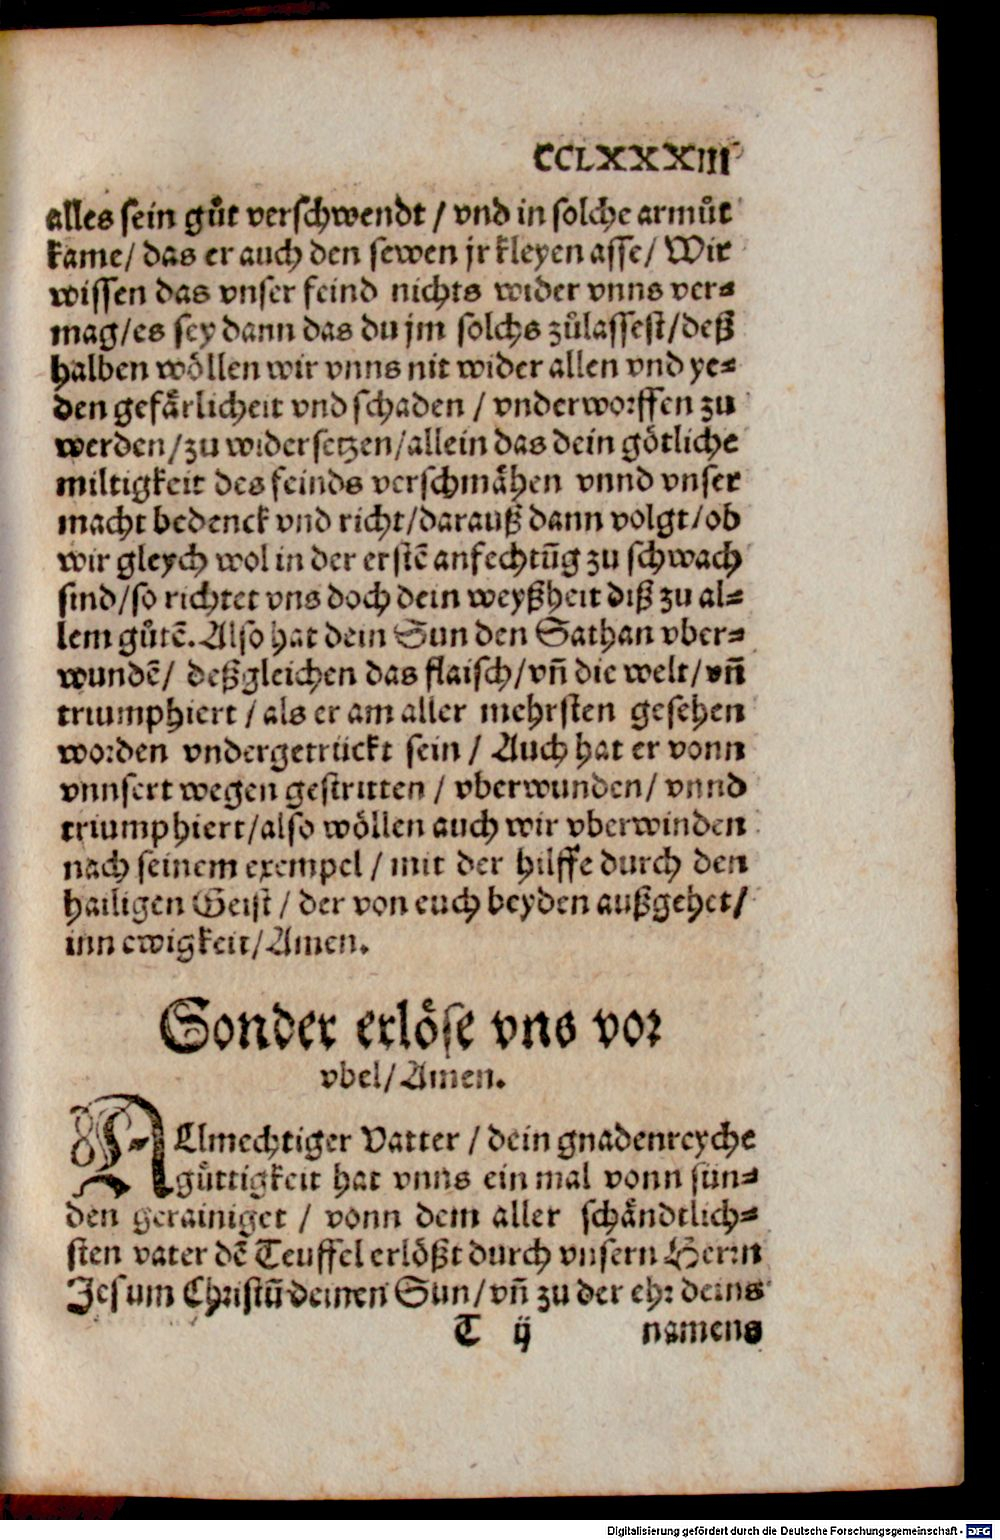 CCLXXXIII
alles sein gůt verschwendt / vnd in solche armůt
kame/ das er auch den sewen jr kleyen asse/ Wir
wissen das vnser feind nichts wider vnns ver-
mag/es sey dann das du jm solchs zůlassest/deß
halben wöllen wir vnns nit wider allen vnd ye-
den gefärlicheit vnd schaden / vnderworffen zu
werden/zu widersetzen/allein das dein götliche
miltigkeit des feinds verschmähen vnnd vnser
macht bedenck vnd richt/darauß dann volgt/ob
wir gleych wol in der erstē anfechtūg zu schwach
sind/so richtet vns doch dein weyßheit diß zu al-
lem gůtē. Also hat dein Sun den Sathan vber-
wundē/ deßgleichen das flaisch/vñ die welt/vñ
triumphiert / als er am aller mehrsten gesehen
worden vndergetrückt sein / Auch hat er vonn
vnnsert wegen gestritten / vberwunden/ vnnd
triumphiert/also wöllen auch wir vberwinden
nach seinem exempel / mit der hilffe durch den
hailigen Geist / der von euch beyden außgehet/
inn ewigkeit/Amen.
Sonder erlöse vns vor
vbel/Amen.
ALlmechtiger Vatter / dein gnadenreyche
gůttigkeit hat vnns ein mal vonn sün-
den gerainiget / vonn dem aller schändtlich-
sten vater dē Teuffel erlößt durch vnsern Herrn
Jesum Christū deinen Sun/vñ zu der ehr deins
T ij namens
Digitalisierung gefördert durch die Deutsche Forschungsgemeinschaft - DFG